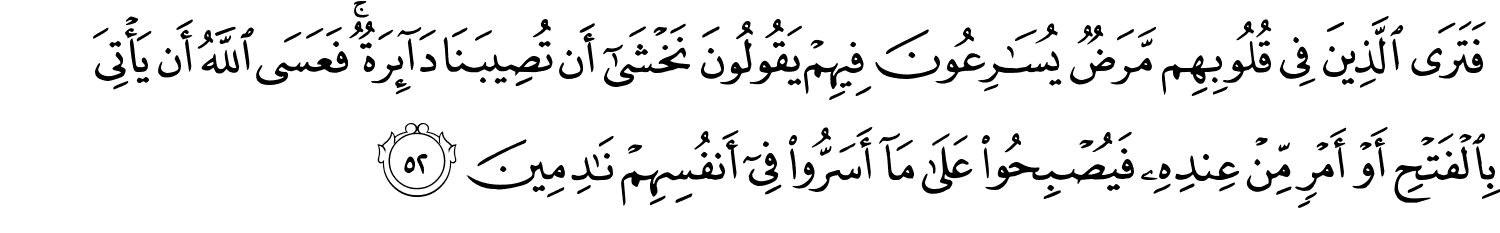 فَتَرَى ٱلَّذِينَ فِى قُلُوبِهِم مَّرَضٌ يُسَـٰرِعُونَ فِيهِمْ يَقُولُونَ نَخْشَىٰٓ أَن تُصِيبَنَا دَآئِرَةٌ ۚ فَعَسَى ٱللَّهُ أَن يَأْتِىَ
بِٱلْفَتْحِ أَوْ أَمْرٍ مِّنْ عِندِهِۦ فَيُصْبِحُوا۟ عَلَىٰ مَآ أَسَرُّوا۟ فِىٓ أَنفُسِهِمْ نَـٰدِمِينَ ٥٢